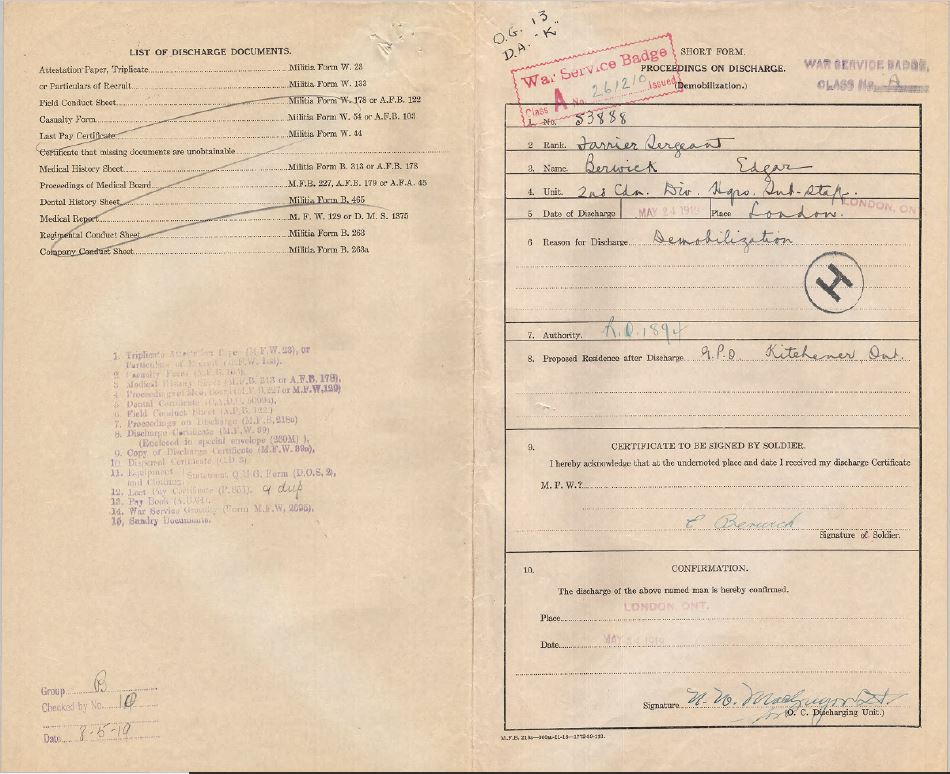 LIST OF DISCHARGE DOCUMENTS.
Attestation Paper, Triplicate Militia Form W. 23
or Particulars of Recruit Militia Form W. 133
Field Conduct Sheet Militia Form W. 178 or A.F.B. 122
Casualty Form Militia Form W. 54 or A.F.B. 103
Last Pay Certificate Militia Form W. 44
Certificate that missing documents are unobtainable
Medical History Sheet Militia Form B. 313 or A.F.B. 178
Proceedings of Medical Board M.F.B. 227, A.F.B. 179 or A.F.A. 45
Dental History Sheet Militia Form B. 465
Medical Report M. F. W. 129 or D. M. S. 1375
Regimental Conduct Sheet Militia Form B. 263
Company Conduct Sheet Militia Form B. 263a
1. Triplicate Attestation Paper (M.F.W. 23), or
Particulars of Recruit
2. Casualty Form
3. Medical History Sheet (M.F.B. 313 or A.F.B. 178),
4. Proceedings of Med. Board (M.F.B. 227 or M.F.W. 129)
5. Dental Certificate
6. Field Conduct Sheet (A.F.B. 122)
7. Proceedings on Discharge (M.F.B. 218a)
8. Discharge Certificate (M.F.W. 39)
(Enclosed in special envelope (260M) ),
9. Copy of Discharge Certificate (M.F.W. 39a),
10. Dispersal Certificate
11. Equipment and Clothing Statement Q.M.G. Form (D.O.S. 2),
12. Last Pay Certificate (P. 851). 4 dup
13. Pay Book
14. War Service Gratuity (Form M.F.W. 2595),
15. Sundry Documents.
Group B
Checked by No. 10
Date 8-5-19
O.G. 13
D.A. K
War Service Badge
Class A No. 261210 Issued
SHORT FORM.
PROCEEDINGS ON DISCHARGE.
(Demobilization.)
WAR SERVICE BADGE,
CLASS No. A
1. No. 53888
2 Rank. Farrier Sergeant
3. Name. Berwick Edgar
4. Unit. 2nd Cdn. Div. Hqrs. Sub-staff.
5 Date of Discharge MAY 24 1919 Place London. LONDON, ONT
6 Reason for Discharge Demobilization
H
7. Authority. R.O. 1894
8. Proposed Residence after Discharge G.P.O Kitchener Ont.
9. CERTIFICATE TO BE SIGNED BY SOLDIER.
I hereby acknowledge that at the undernoted place and date I received my discharge Certificate
M. F. W.?
E Berwick
Signature of Soldier.
10. CONFIRMATION.
The discharge of the above named man is hereby confirmed.
Place LONDON, ONT.
Date MAY 24 1919
Signature
(O. C. Discharging Unit.)